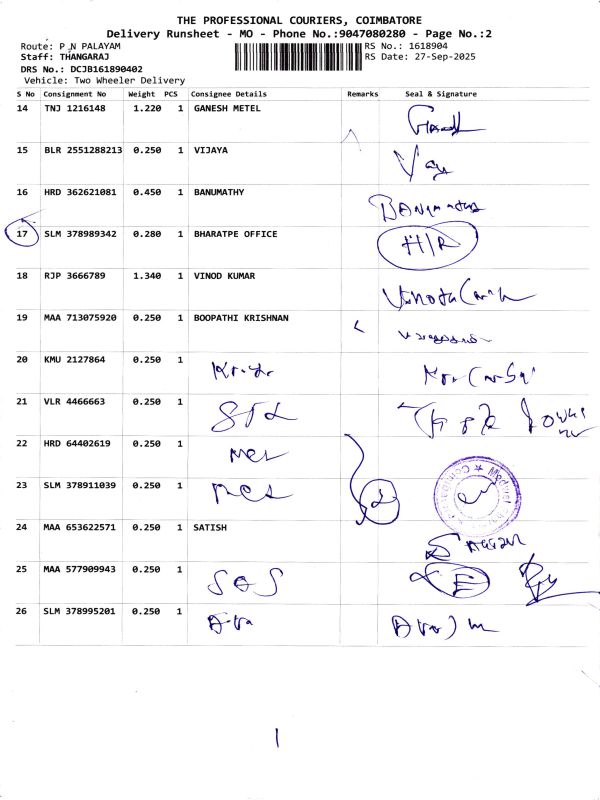 THE PROFESSIONAL COURIERS, COIMBATORE
Delivery Runsheet - MO - Phone No.:9047080280 - Page No.:2
Route: P N PALAYAM RS No.: 1618904
Staff: THANGARAJ RS Date: 27-Sep-2025
DRS No.: DCJB161890402
Vehicle: Two Wheeler Delivery
S No Consignment No Weight PCS Consignee Details Remarks Seal & Signature
14 TNJ 1216148 1.220 1 GANESH METEL
15 BLR 2551288213 0.250 1 VIJAYA
16 HRD 362621081 0.450 1 BANUMATHY
17 SLM 378989342 0.280 1 BHARATPE OFFICE H/R
18 RJP 3666789 1.340 1 VINOD KUMAR
19 MAA 713075920 0.250 1 BOOPATHI KRISHNAN
20 KMU 2127864 0.250 1
21 VLR 4466663 0.250 1
22 HRD 64402619 0.250 1
23 SLM 378911039 0.250 1 2
24 MAA 653622571 0.250 1 SATISH
25 MAA 577909943 0.250 1
26 SLM 378995201 0.250 1